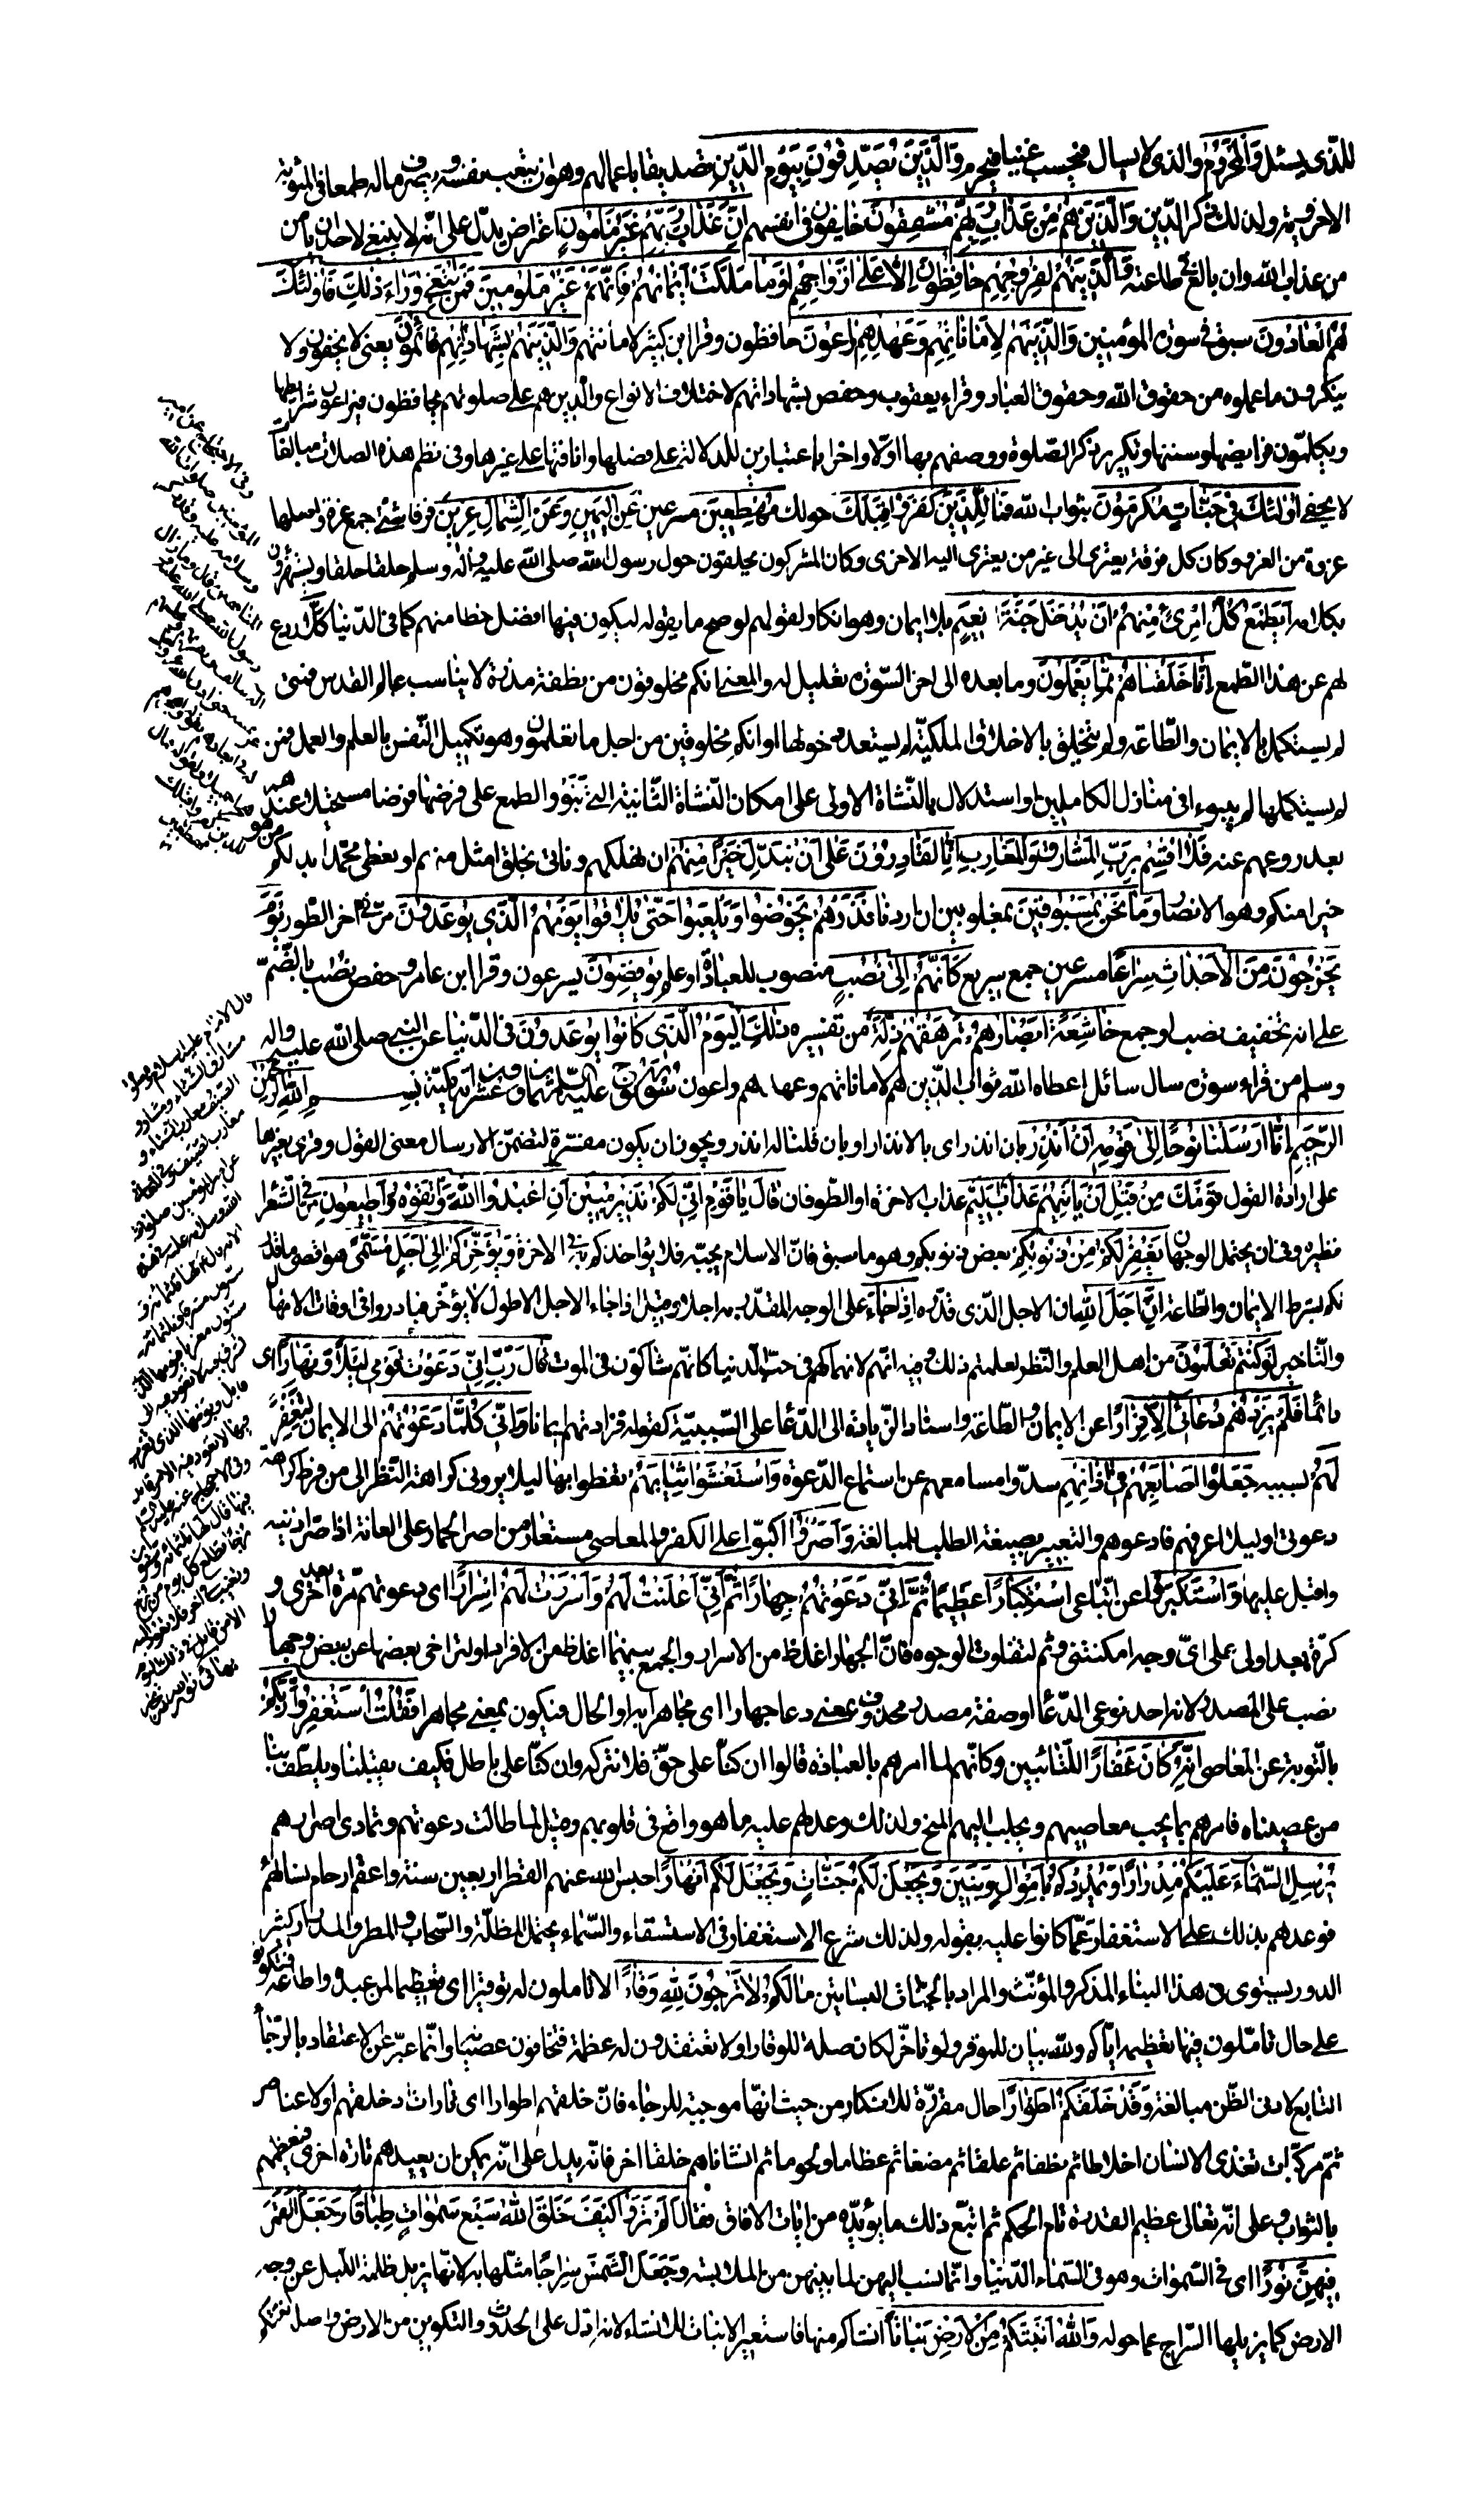 للذى يسئل والمحروم والذى لا يسال فيحسب غنيا فيحرم والذين يصدقون بيوم الدين تصديقا باعمالهم وهو ان يتعب نفسه ويصرف ماله طمعا فى المثوبة
الاخروية ولذلك ذكر الدين والذين هم من عذاب ربهم مشفقون خايفون فى انفسهم ان عذاب ربهم غير مامون اعتراض يدل على انه لا ينبغى لاحد ان يأمن
من عذاب الله وان بالغ فى طاعته والذين هم لفروجهم حافظون الا على ازواجهم او ما ملكت ايمانهم فانهم غير ملومين فمن ابتغى وراء ذلك فاولئك
هم العادون سبق فى سورة المؤمنين والذين هم لاماناتهم وعهدهم راعون حافظون وقرا ابن كثير لامانتهم والذين هم بشهاداتهم قائمون يعنى لا يخفون ولا
ينكرون ما عملوه من حقوق الله وحقوق العباد وقراء يعقوب وحفص بشهاداتهم لاختلاف الانواع والذين هم على صلوتهم يحافظون فيراعون شرايطها
ويكملون فرايضها وسننها وتكرير ذكر الصلوة ووصفهم بها اولا واخرا باعتبارين للدلالة على فضلها وانافتها على غيرها وفى نظم هذه الصلات مبالغات
لا يخفى اولئك فى جنات مكرمون بثواب الله فمال الذين كفروا قبلك حولك مهطعين مسرعين عن اليمين وعن الشمال عزين فرقا شتى جمع عزة واصلها
عزوة من العزو وكان كل فرقة يعتزى الى غير من يعتزى اليه الاخرى وكان المشركون يحلقون حول رسول الله صلى الله عليه وآله وسلم حلقا حلقا ويستهزؤن
بكلامه ايطمع كل امرئ منهم ان يدخل جنة نعيم بلا ايمان وهو انكار لقولهم لو صح ما يقوله ليكون فيها افضل حظا منهم كما فى الدنيا كلا ردع
لهم عن هذا الطمع انا خلقناهم مما يعلمون وما بعده الى اخر السورة تعليل له والمعنى انكم مخلوقون من نطفة مذرة لا يناسب عالم القدس فمتى
لم يستكمل بالايمان والطاعة ولم يتخلق بالاخلاق الملكية لم يستعد دخولها او انكم مخلوقين من اجل ما تعلمون وهو تكميل النفس بالعلم والعمل فمن
لم يستكملها لم يبوء فى منازل الكاملين او استدلال بالنشاة الاولى على امكان النشاة الثانية التى بنوا الطمع على فرضها فرضا مستحيلا عندهم
بعد ردعهم عنه فلا اقسم برب المشارق والمغارب انا لقادرون على ان نبدل خيرا منهم ان نهلكهم وناتى بخلق امثل منهم او نعطى محمدا بدلكم
خيرا منكم وهو الانصار وما نحن بمسبوقين بمغلوبين ان اردنا فذرهم يخوضوا ويلعبوا حتى يلاقوا يومهم الذى يوعدون مر فى اخر الطور يوم
يخرجون من الاجداث سراعا مسرعين جمع سريع كانهم الى نصب منصوب للعبادة او علم يوفضون يسرعون وقرا ابن عامر وحفص نصب بالضم
على انه تخفيف نصب او جمع خاشعة ابصارهم ترهقهم ذلة مر تفسيره ذلك اليوم الذى كانوا يوعدون فى الدنيا عن النبى صلى الله عليه واله
وسلم من قراء سورة سال سائل اعطاه الله ثواب الذين هم لاماناتهم وعهدهم راعون سورة نوح عليه السلام ثمان وعشرون اية مكية بسم الله الرحمن
الرحيم انا ارسلنا نوحا الى قومه ان انذر بان انذر اى بالانذار او بان قلنا له انذر ويجوز ان يكون مفسرة لتضمن الارسال معنى القول وقرى بغيرها
على ارادة القول قومك من قبل ان ياتيهم عذاب اليم عذاب الاخرة او الطوفان قال يا قوم انى لكم نذير مبين ان اعبدوا الله واتقوه واطيعون مر فى الشعرا
نظيره وفى ان يحتمل الوجهان يغفر لكم من ذنوبكم بعض ذنوبكم وهو ما سبق فان الاسلام يجبه فلا يؤاخذكم به فى الاخرة ويؤخركم الى اجل مسمى هو اقصى ما قدر
لكم بشرط الايمان والطاعة ان اجل الله ان الاجل الذى قدره اذا جاء على الوجه المقدر به اجلا وقيل اذا جاء الاجل الاطول لا يؤخر فبادروا فى اوقات الامهال
والتاخير لو كنتم تعلمون من اهل العلم والنظر لعلمتم ذلك وفيه انهم لانهماكهم فى حب الدنيا كانهم شاكون فى الموت قال رب انى دعوت قومى ليلا ونهارا اى
دائما فلم يزدهم دعائى الا فرارا عن الايمان والطاعة واسناد الزيادة الى الدعا على السببية كقوله فزادتهم ايمانا وانى كلما دعوتهم الى الايمان لتغفر
لهم بسببه جعلوا اصابعهم فى اذانهم سدوا مسامعهم عن استماع الدعوة واستغشوا ثيابهم تغطوا بها ليلا يرونى كراهة النظر الى من فرط كراهة
دعوتى او ليلا اعرفهم فادعوهم والتعبير بصيغة الطلب للمبالغة واصروا اكبوا على الكفر والمعاصى مستعار من اصر الحمار على العانة اذا صر اذنيه
واقبل عليها واستكبروا عن اتباعى استكبارا عظيما ثم انى دعوتهم جهارا ثم انى اعلنت لهم واسررت لهم اسرارا اى دعوتهم مرة بعد اخرى و
كرة بعد اولى على اى وجه امكننى وثم لتفاوت الوجوه فان الجهار اغلظ من الاسرار والجمع بينهما اغلظ من الافراد او لتراخى بعضها عن بعض وجهارا
نصب على المصدر لانه احد نوعى الدعا او صفة مصدر محذوف بمعنى دعا جهارا اى مجاهرا به او الحال فيكون بمعنى مجاهرا فقلت استغفروا ربكم
بالتوبة عن المعاصى انه كان غفارا للتائبين وكانهم لما امرهم بالعبادة قالوا ان كنا على حق فلا نتركه وان كنا على باطل فكيف يقبلنا ويلطف بنا
من عصيناه فامرهم بما يجب معاصيهم ويجلب اليهم المنح ولذلك وعدهم عليه ما هو واقع فى قلوبهم وقيل لما طالت دعوتهم وتمادى اصرارهم
يرسل السماء عليكم مدرارا ويمددكم باموال وبنين ويجعل لكم جنات ويجعل لكم انهارا حبس الله عنهم القطر اربعين سنة واعقم ارحام نسائهم
فوعدهم بذلك على الاستغفار عما كانوا عليه بقوله ولذلك شرع الاستغفار فى الاستسقاء والسماء يحتمل المظلة والسحاب والمطر والمدرار كثير
الدور يستوى فى هذا البناء المذكر والمؤنث والمراد بالجنات البساتين ما لكم لا ترجون لله وقارا لا تاملون له توقيرا اى تعظيما لمن عبده واطاعه فتكونوا
على حال تاملون فيها تعظيمه اياكم ولله بيان للموقر ولو تاخر لكان صلة للوقار او لا تعتقدون له عظمة فتخافون عصيانه وانما عبر عن الاعتقاد بالرجاء
التابع لادنى الظن مبالغة وقد خلقكم اطوارا حال مقررة للانكار من حيث انها موجبة للرجاء فان خلقهم اطوارا اى تارات اذ خلقهم اولا عناصر
ثم مركبات تغذى الانسان اخلاطا ثم نطفا ثم علقا ثم مضغا ثم عظاما ولحوما ثم انشاناهم خلقا اخر فانه يدل على انه يمكن ان يعيدهم تارة اخرى فيعظمهم
بالثواب وعلى انه تعالى عظيم القدرة تام الحكم ثم اتبع ذلك ما يؤيده من ايات الافاق فقال الم تروا كيف خلق الله سبع سموات طباقا وجعل القمر
فيهن نورا اى فى السموات وهو فى السماء الدنيا وانما نسب اليهن لما بينهن من الملابسة وجعل الشمس سراجا مثلها به لانها يزيل ظلمة الليل عن وجه
الارض كما يزيلها السراج عما حوله والله انبتكم من الارض نباتا انشاكم منها فاستعير الانبات للانشاء لانه ادل على الحدوث والتكوين من الارض واصله انبتكم